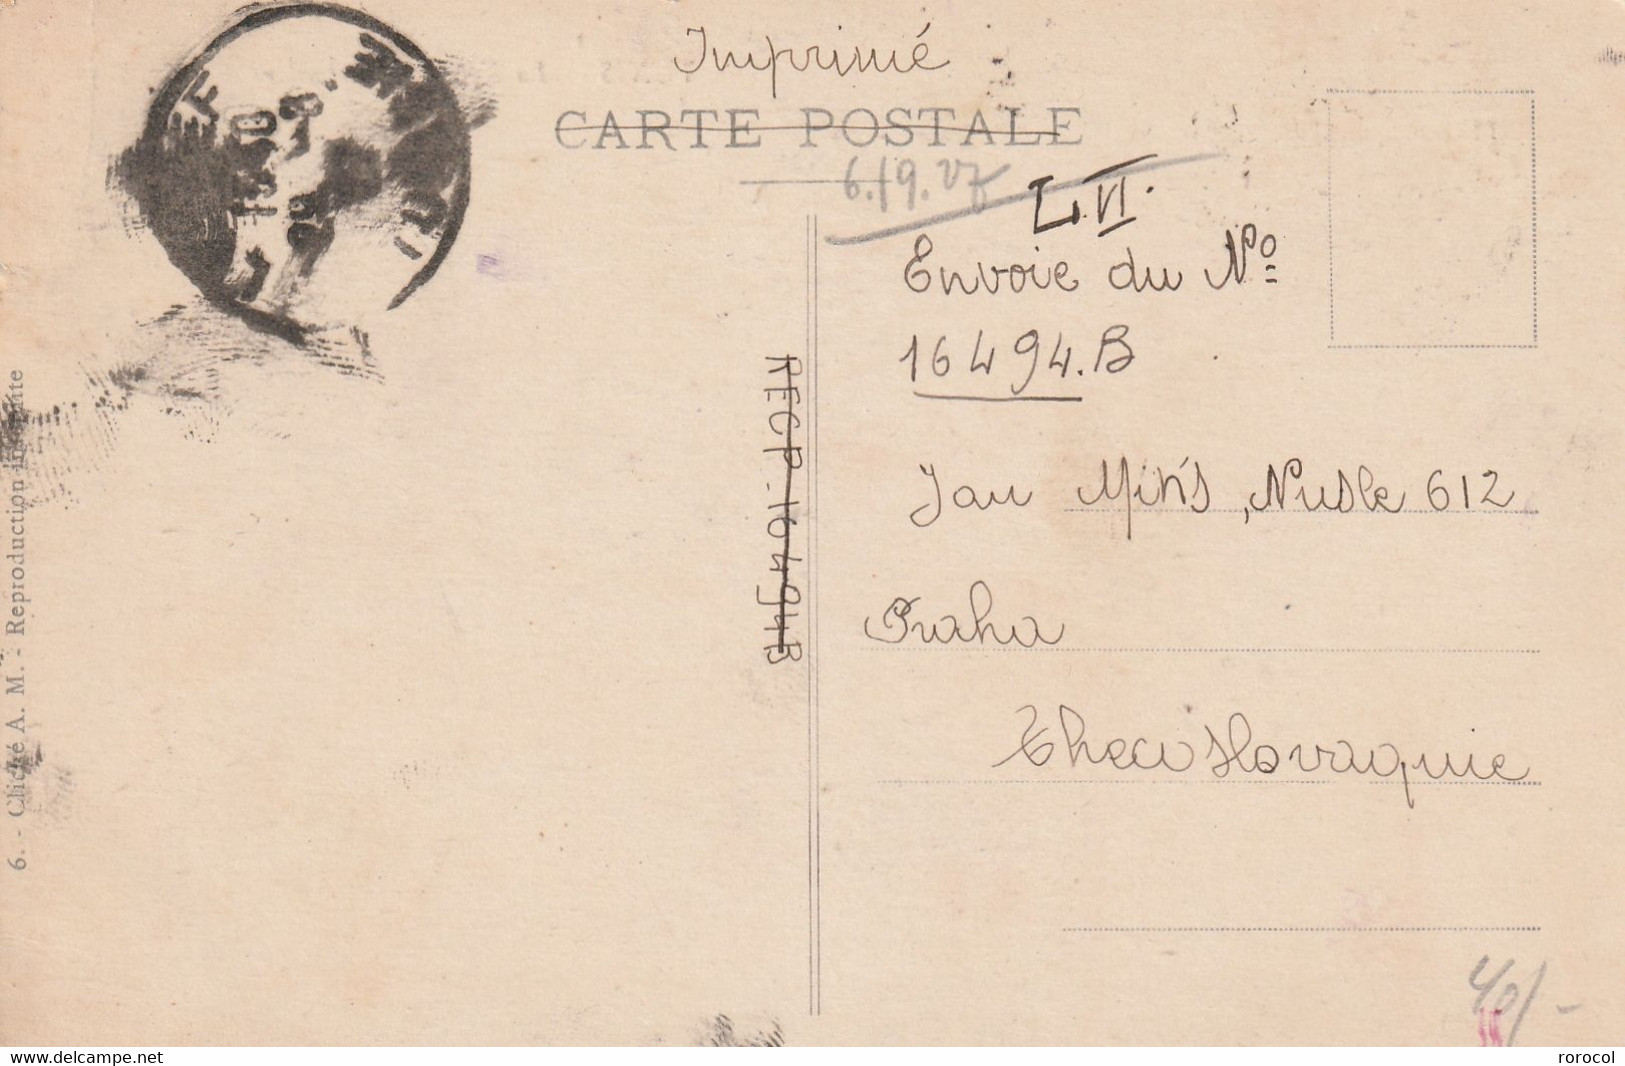 Imprimé
CARTE POSTALE
6./9.27
L.VI.
Envoie du Nº
16494.B
RECP.16494B
Jan Mins, Nusle 612
Praha
Thecoslovaquie
6. - Cliché A. M. - Reproduction interdite
40/-
www.delcampe.net
rorocol